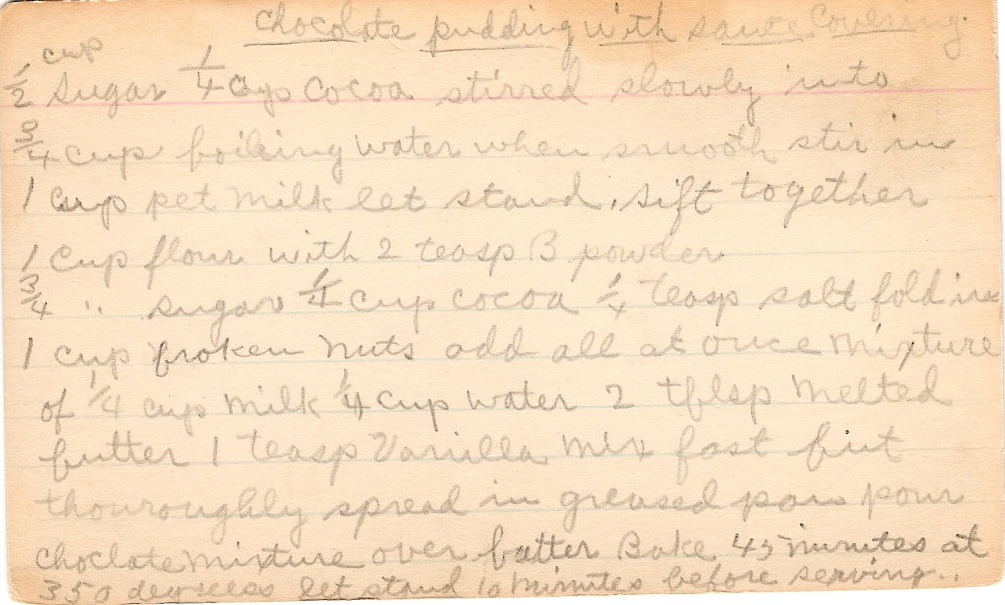 Chocolate pudding with sauce Covering.
1/2 cup Sugar 1/4 cup Cocoa stirred slowly into
3/4 cup boiling water when smooth stir in
1 cup pet milk let stand, sift together
1 cup flour with 2 teasp B powder
3/4 " sugar 1/4 cup cocoa 1/4 teasp salt fold in
1 cup broken nuts add all at once mixture
of 1/4 cup milk 1/4 cup water 2 tblsp melted
butter 1 teasp Vanilla mix fast but
thouroughly spread in greased pan pour
choclate mixture over batter Bake 45 minutes at
350 degrees let stand 10 minutes before serving..